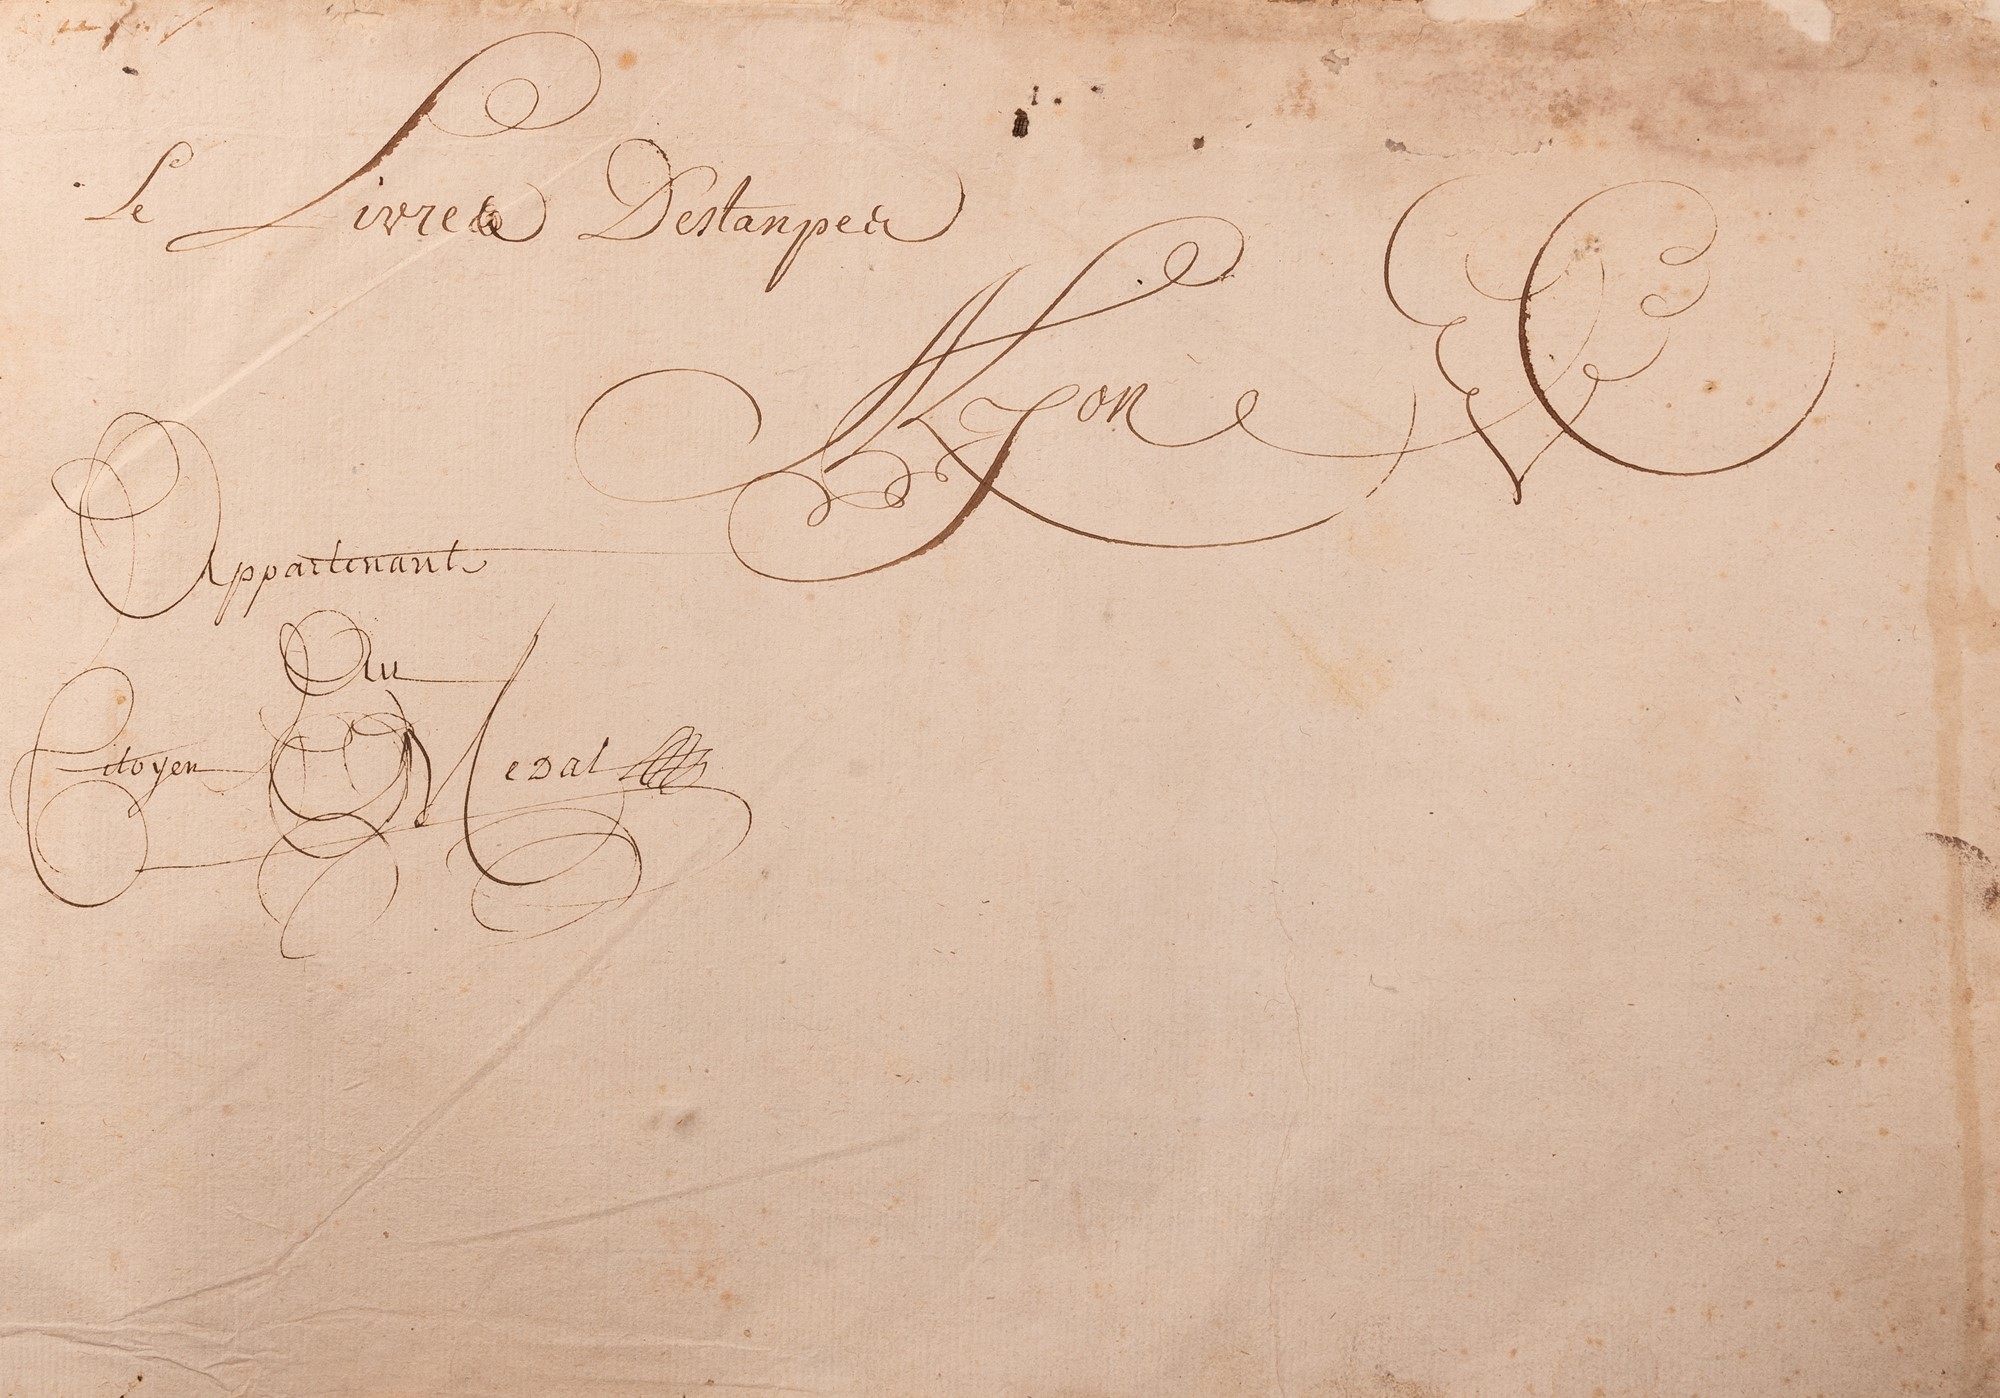 Le Livres Destanpes
A Lyon
Appartenant
Au
Citoyen Medal